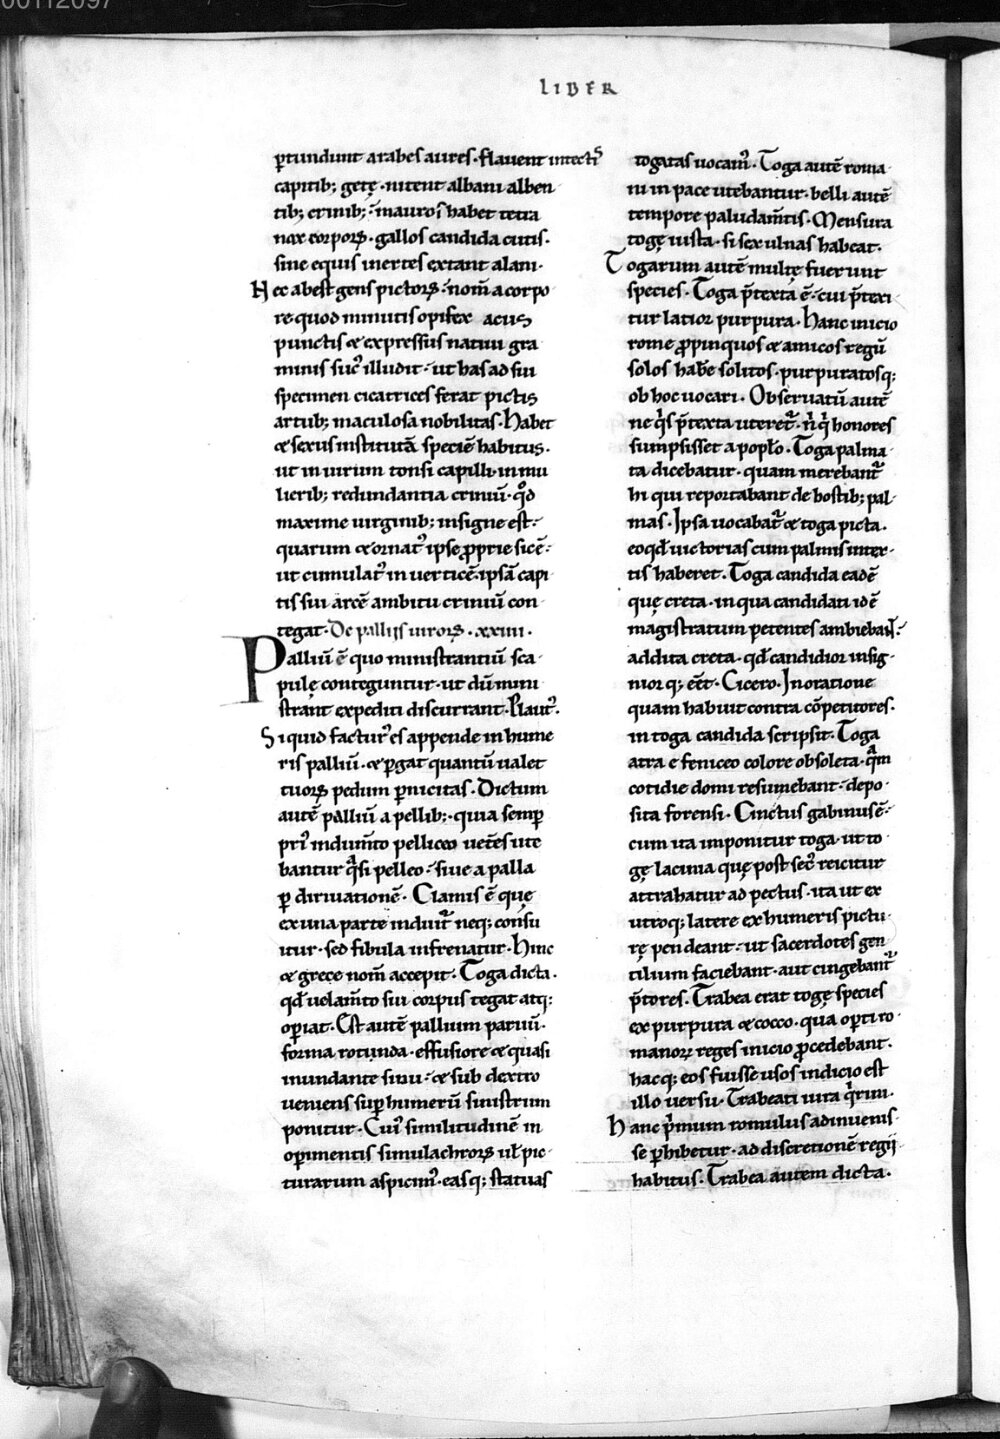 00112097
LIBER
ꝑtundunt arabes aures. flauent intectꝰ
capitib; getę. nitent albani alben
tib; crinib;. mauros habet tetra
nox corporꝝ. gallos candida cutis.
sine equis inertes extant alani.
Nec abest gens pictorꝝ. nom̄ a corpo
re quod minutis opifex acus
punctis & expressus natiui gra
minis suc̄ illudit. ut has ad sui
specimen cicatrices ferat pictis
artub; maculosa nobilitas. Habet
& sexus institutā speciē habitus.
ut in uirum tonsi capilli. in mu
lierib; redundantia criniū. qd̄
maxime uirginib; insigne est.
quarum & ornatꝰ ipse ꝓprie sic ē.
ut cumulatꝰ in uerticē. ipsā capi
tis sui arcē ambitu criniū con
tegat. De pallijs uirorꝝ. xxiiii.
Palliū ē quo ministrantiū sca
pulę conteguntur. ut dū mini
strant expediti discurrant. Plautꝰ.
Si quid facturꝰ es appende in hume
ris palliū. & ꝑgat quantū ualet
tuorꝝ pedum ꝑnicitas. Dictum
autē pallium a pellib;. quia semꝑ
priꝰ indumto pelliceo uetēs ute
bantur qͣsi pelleo. siue a palla
ꝑ diriuationē. Clamis ē que
ex una parte induit᷑ neq; consu
itur. sed fibula infrenatur. Hinc
& grece nom̄ accepit. Toga dicta.
qd̄ uelam̄to sui corpus tegat atq;
oꝑiat. Est autē pallium purū.
forma rotunda. effusiore & quasi
inundante sinu. & sub dextro
ueniens suꝑ humerū sinistrum
ponitur. Cuiꝰ similitudinē in
oꝑimentis simulachrorꝝ ul̄ pic
turarum aspicimꝰ. easq; statuas
togatas uocamꝰ. Toga autē roma
ni in pace utebantur. belli autē
tempore paludam̄tis. Mensura
togę iusta. si sex ulnas habeat.
Togarum autē multę fuerunt
species. Toga p̄texta ē. cui p̄texi
tur latior purpura. Hanc inicio
rome ꝓpinquos & amicos regū
solos hab̄e solitos. purpuratosq;
ob hoc uocari. Obseruatū autē
ne qͥs p̄texta uteret᷑. n̄ qͥ honores
sumpsisset a popl̄o. Toga palma
ta dicebatur. quam merebant᷑
hi qui reportabant de hostib; pal
mas. Ipsa uocabat᷑ & toga picta.
eo qd̄ uictorias cum palmis inter
tis haberet. Toga candida eadē
quę creta. in qua candidati idē
magistratum petentes ambiebant.
addita creta. qd̄ candidior insig
nior q; eēt. Cicero. In oratione
quam habuit contra cōpetitores.
in toga candida scripsit. Toga
atra e feniceo colore obsoleta. qͣm
cotidie domi resumebant. depo
sita forensi. Cinctus gabinus ē.
cum ita imponitur toga. ut to
gę lacinia quę post sec̄ reicitur
attrahatur ad pectus. ita ut ex
utroq; latere ex humeris pictu
rę pendeant. ut sacerdotes gen
tilium faciebant. aut cingebant᷑
p̄tores. Trabea erat togę species
ex purpura & cocco. qua oꝑti ro
manoꝝ reges inicio ꝓcedebant.
hacq; eos fuisse usos indicio est
illo uersu. Trabeati iura qͥrini.
Hanc pͥmum romulus adinuenis
se ꝑhibetur. ad discretionē regij
habitus. Trabea autem dicta.